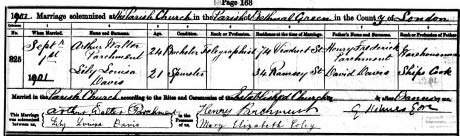 Page 168
1901. Marriage solemnized at the Parish Church in the Parish of Bethnal Green in the County of London
No. When Married. Name and Surname. Age. Condition. Rank or Profession. Residence at the time of Marriage. Father's Name and Surname. Rank or Profession of Father.
825 Septr 1st 1901 Arthur Walter Parchment 24 Bachelor Telegraphist 74 St Henry Frederick Parchment Warehouseman
Lily Louisa Davis 21 Spinster 34 Ramsey St David Davis Ships Cook
Married in the Parish Church according to the Rites and Ceremonies of the Established Church by or after Banns by me,
This Marriage was solemnized between us, Arthur Walter Parchment Lily Louisa Davis in the Presence of us, Henry Mary Elizabeth